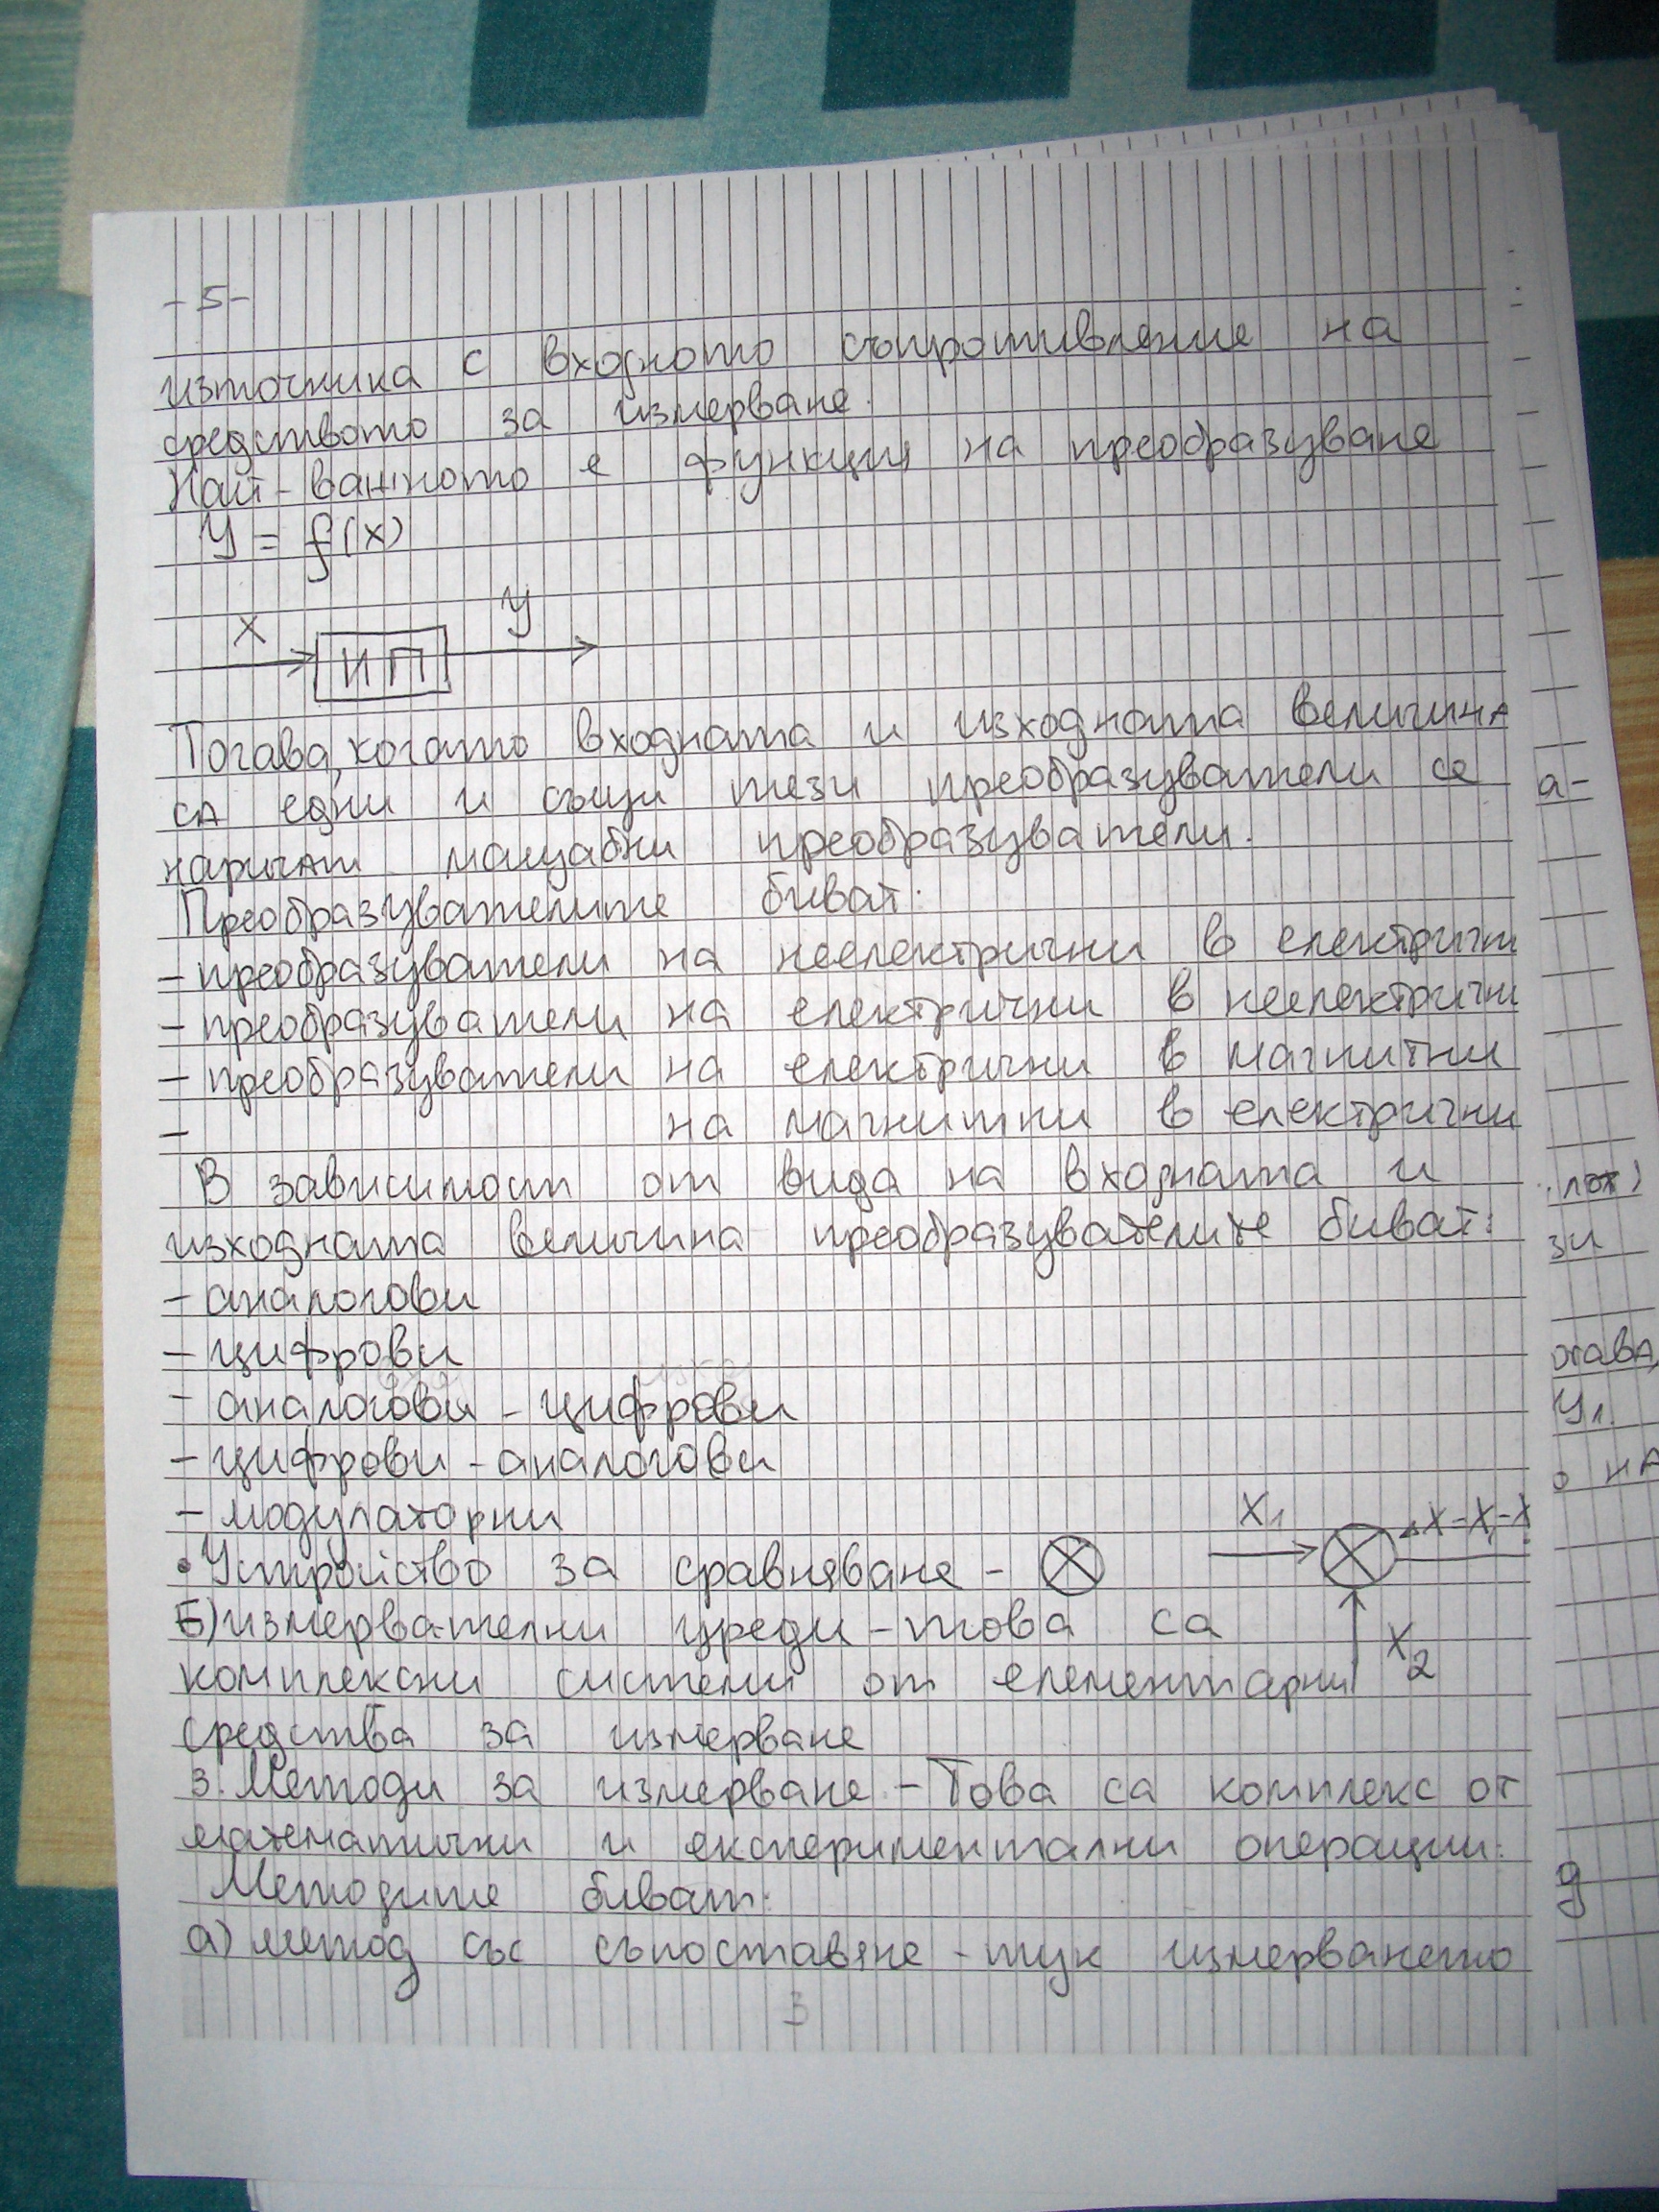 - 5 -
източника с входното съпротивление на
средството за измерване.
Най-важното е функция на преобразуване
y = f(x)
x y
ИП
Тогава, когато входната и изходната величина
са едни и същи тези преобразуватели се
наричат мащабни преобразуватели.
Преобразувателите биват:
- преобразуватели на неелектрични в електричн
- преобразуватели на електрични в неелектрични
- преобразуватели на електрични в магнитни
- на магнитни в електрични
В зависимост от вида на входната и
изходната величина преобразувателите биват:
- аналогови
- цифрови
- аналогови - цифрови
- цифрови - аналогови
- модулаторни
• Устройство за сравняване -
x1 ΔX-X1-X
x2
Б) измервателни уреди - това са
комплексни системи от елементарни
средства за измерване
3. Методи за измерване - Това са комплекс от
математични и експериментални операции.
Методите биват:
а) метод със съпоставяне - тук измерването
3
а-
зи
отава,
y1.
о на